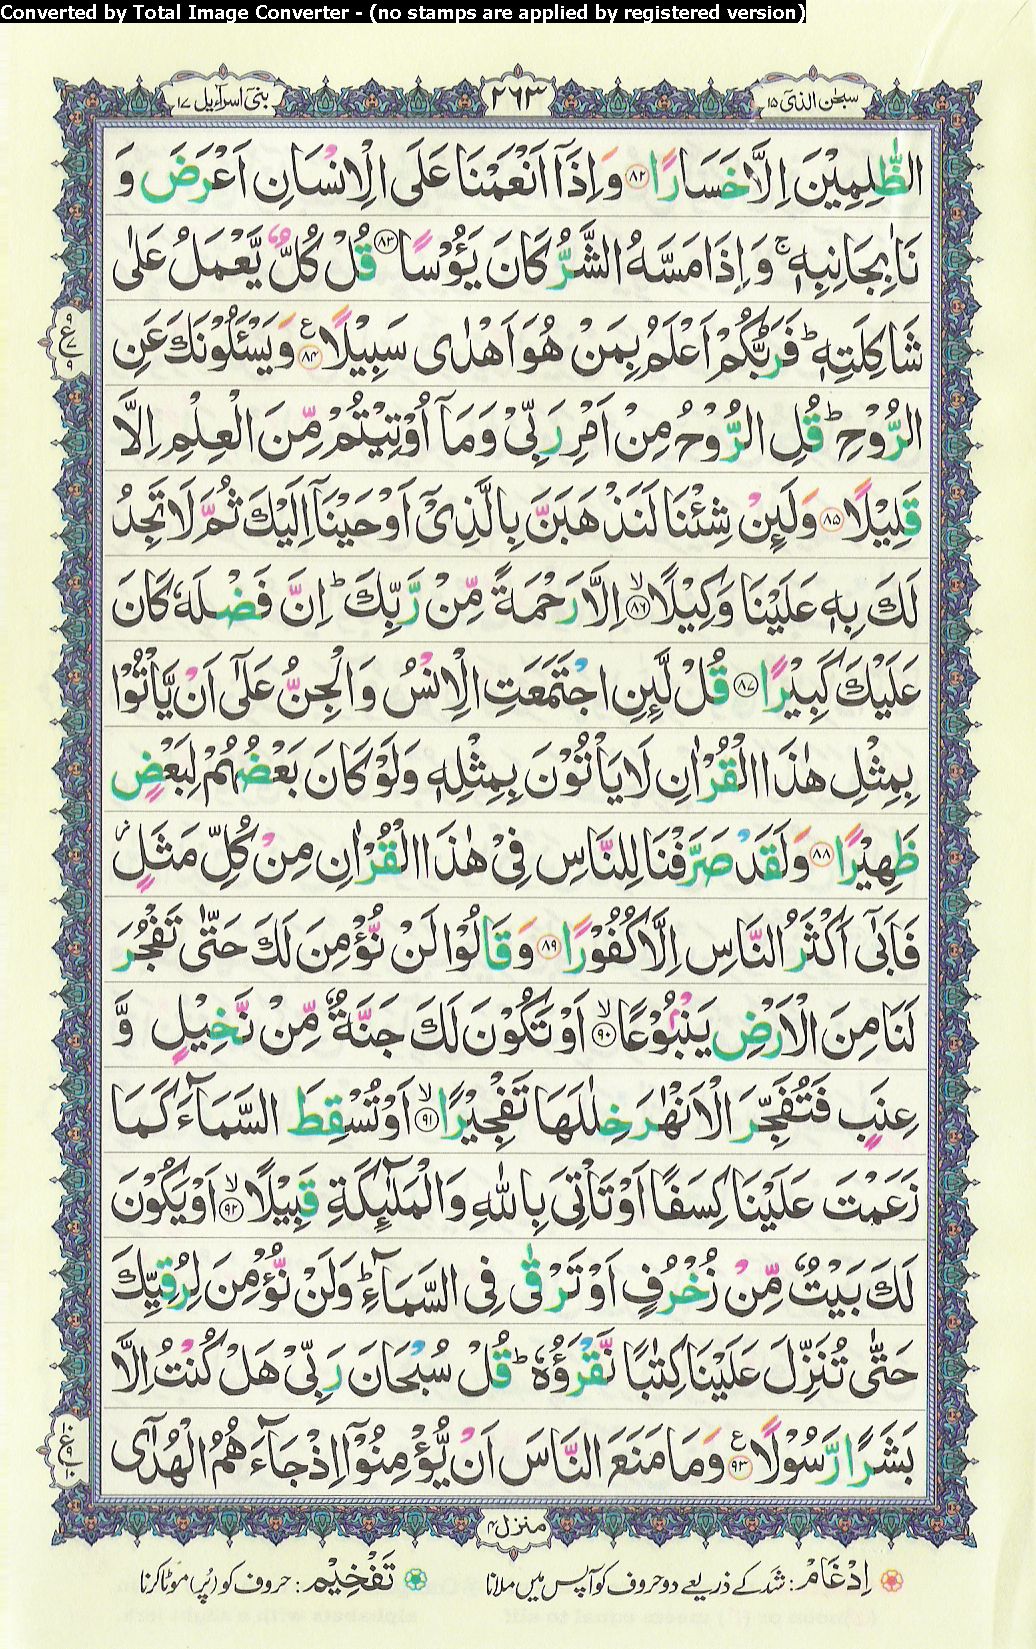 Converted by Total Image Converter - (no stamps are applied by registered version)
سبحٰن الذیٓ ۱۵
۲۶۳
بنیٓ اسرآءیل ۱۷
الظّٰلِمِیْنَ اِلَّا خَسَارًا ﴿۸۲﴾ وَ اِذَاۤ اَنْعَمْنَا عَلَی الْاِنْسَانِ اَعْرَضَ وَ
نَاٰ بِجَانِبِهٖ ۚ وَ اِذَا مَسَّهُ الشَّرُّ كَانَ یَـُٔوْسًا ﴿۸۳﴾ قُلْ كُلٌّ یَّعْمَلُ عَلٰی
شَاكِلَتِهٖ ؕ فَرَبُّكُمْ اَعْلَمُ بِمَنْ هُوَ اَهْدٰی سَبِیْلًا ﴿۸۴﴾ ع وَ یَسْـَٔلُوْنَكَ عَنِ
۹ ع ۷ ۹
الرُّوْحِ ؕ قُلِ الرُّوْحُ مِنْ اَمْرِ رَبِّیْ وَ مَاۤ اُوْتِیْتُمْ مِّنَ الْعِلْمِ اِلَّا
قَلِیْلًا ﴿۸۵﴾ وَ لَىِٕنْ شِئْنَا لَنَذْهَبَنَّ بِالَّذِیْۤ اَوْحَیْنَاۤ اِلَیْكَ ثُمَّ لَا تَجِدُ
لَكَ بِهٖ عَلَیْنَا وَكِیْلًا ﴿۸۶﴾ ۙ اِلَّا رَحْمَةً مِّنْ رَّبِّكَ ؕ اِنَّ فَضْلَهٗ كَانَ
عَلَیْكَ كَبِیْرًا ﴿۸۷﴾ قُلْ لَّىِٕنِ اجْتَمَعَتِ الْاِنْسُ وَ الْجِنُّ عَلٰۤی اَنْ یَّاْتُوْا
بِمِثْلِ هٰذَا الْقُرْاٰنِ لَا یَاْتُوْنَ بِمِثْلِهٖ وَ لَوْ كَانَ بَعْضُهُمْ لِبَعْضٍ
ظَهِیْرًا ﴿۸۸﴾ وَ لَقَدْ صَرَّفْنَا لِلنَّاسِ فِیْ هٰذَا الْقُرْاٰنِ مِنْ كُلِّ مَثَلٍ ؗ
فَاَبٰۤی اَكْثَرُ النَّاسِ اِلَّا كُفُوْرًا ﴿۸۹﴾ وَ قَالُوْا لَنْ نُّؤْمِنَ لَكَ حَتّٰی تَفْجُرَ
لَنَا مِنَ الْاَرْضِ یَنْۢبُوْعًا ﴿۹۰﴾ ۙ اَوْ تَكُوْنَ لَكَ جَنَّةٌ مِّنْ نَّخِیْلٍ وَّ
عِنَبٍ فَتُفَجِّرَ الْاَنْهٰرَ خِلٰلَهَا تَفْجِیْرًا ﴿۹۱﴾ ۙ اَوْ تُسْقِطَ السَّمَآءَ كَمَا
زَعَمْتَ عَلَیْنَا كِسَفًا اَوْ تَاْتِیَ بِاللّٰهِ وَ الْمَلٰٓىِٕكَةِ قَبِیْلًا ﴿۹۲﴾ ۙ اَوْ یَكُوْنَ
لَكَ بَیْتٌ مِّنْ زُخْرُفٍ اَوْ تَرْقٰی فِی السَّمَآءِ ؕ وَ لَنْ نُّؤْمِنَ لِرُقِیِّكَ
حَتّٰی تُنَزِّلَ عَلَیْنَا كِتٰبًا نَّقْرَؤُهٗ ؕ قُلْ سُبْحَانَ رَبِّیْ هَلْ كُنْتُ اِلَّا
بَشَرًا رَّسُوْلًا ﴿۹۳﴾ ع وَ مَا مَنَعَ النَّاسَ اَنْ یُّؤْمِنُوْۤا اِذْ جَآءَهُمُ الْهُدٰۤی
۱۰ ع ۹ ۱۰
منزل ۴
اِدْغَامْ : شد کے ذریعے دو حروف کو آپس میں ملانا
تَفْخِیْم : حروف کو (پُر) موٹا کرنا